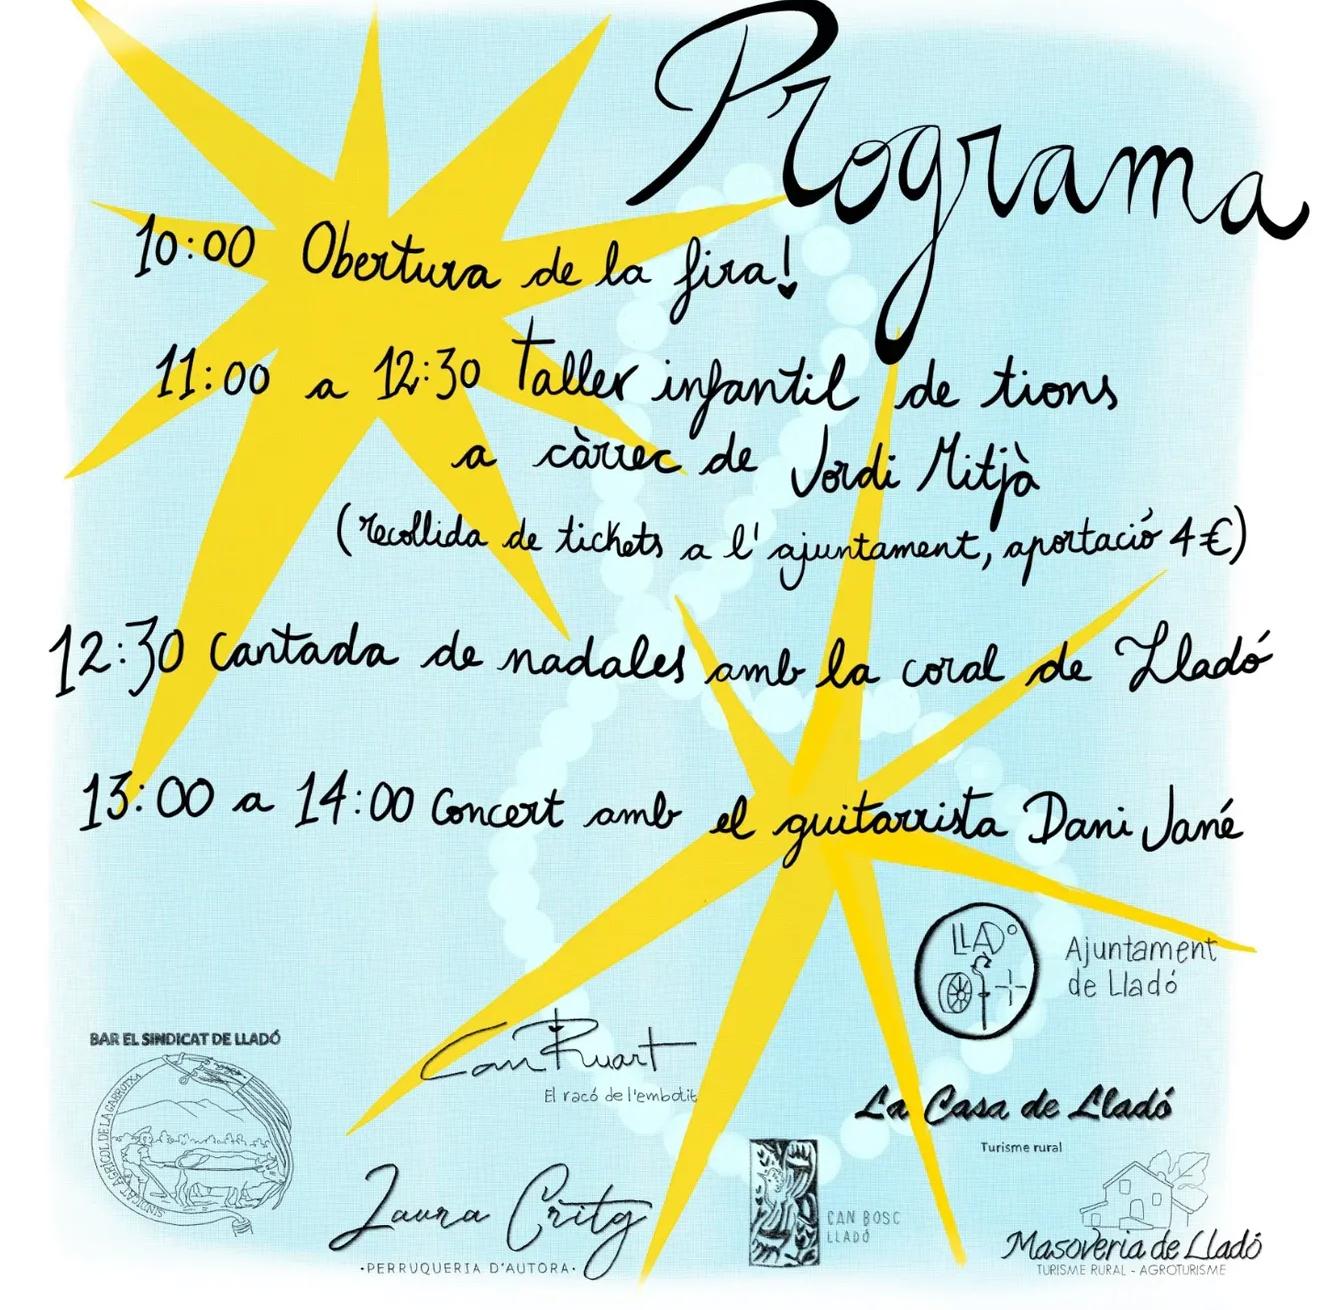 Programa
10:00 Obertura de la fira!
11:00 a 12:30 Taller infantil de tions
a càrrec de Jordi Mitjà
(recollida de tickets a l'ajuntament, aportació 4€)
12:30 Cantada de nadales amb la coral de Lladó
13:00 a 14:00 Concert amb el guitarrista Dani Jané
LLADÓ
Ajuntament
de Lladó
BAR EL SINDICAT DE LLADÓ
SINDICAT AGRÍCOL DE LA GARROTXA
Can Ruart
El racó de l'embotit
La Casa de Lladó
Turisme rural
Laura Critg
·PERRUQUERIA D'AUTORA·
CAN BOSC
LLADÓ
Masoveria de Lladó
TURISME RURAL - AGROTURISME